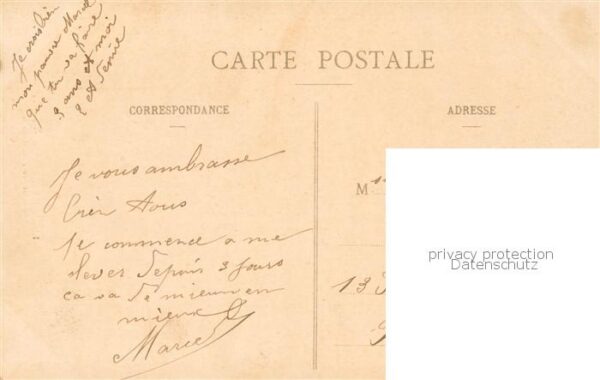 Je crois bien
mon pauvre Marcel
que tu va faire
3 ans et moi
2 et demie
CARTE POSTALE
CORRESPONDANCE
Je vous ambrasse
bien Tous
Je commence a me
lever depuis 3 jours
ca va de mieux en
mieux
Marcel
ADRESSE
M
privacy protection
Datenschutz
13